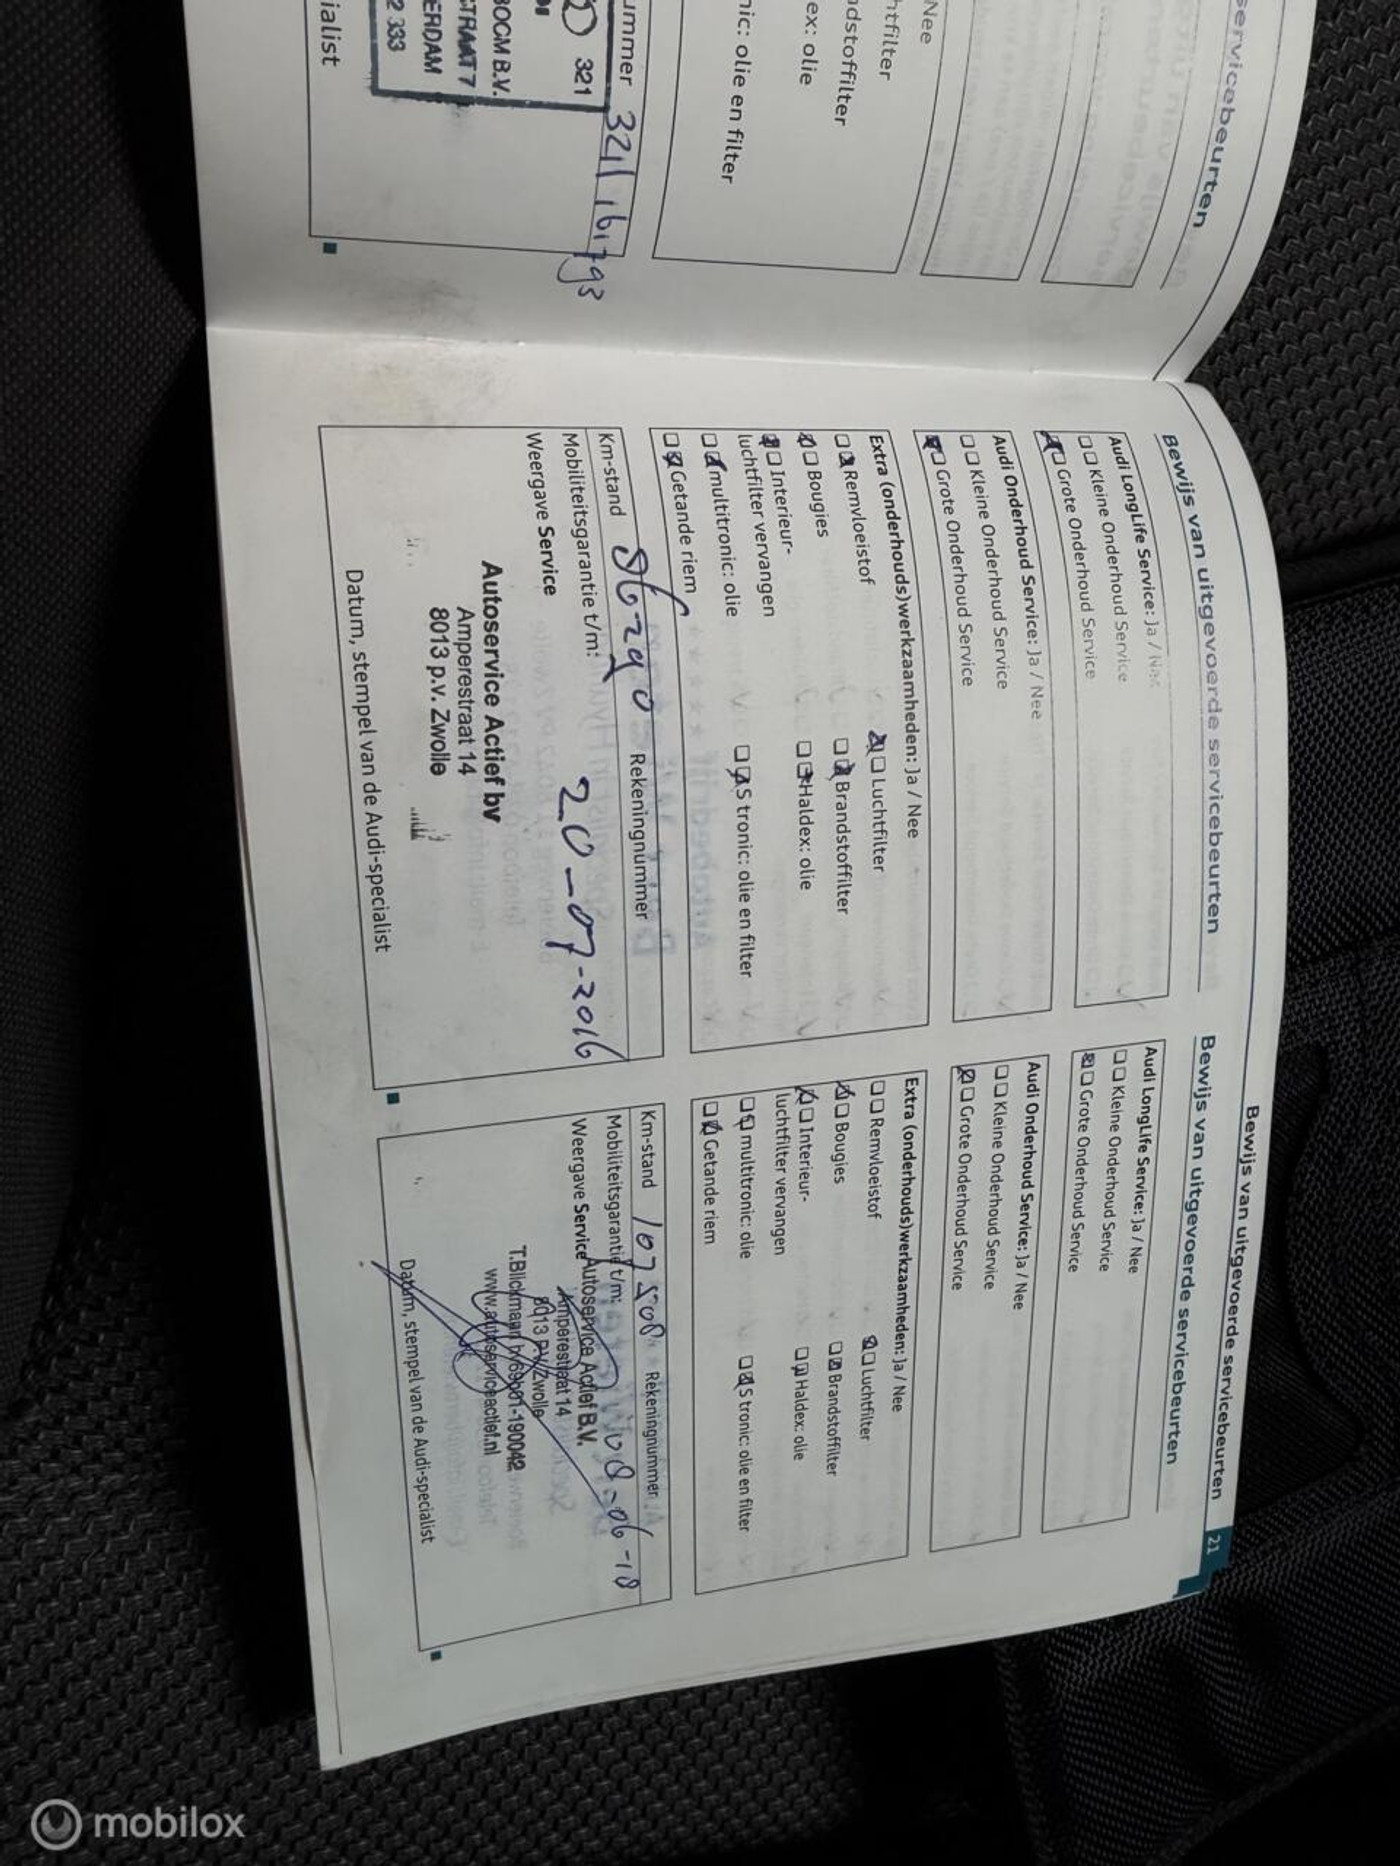 servicebeurten
Nee
htfilter
dstoffilter
ex: olie
nic: olie en filter
ummer 321161793
321
BOCM B.V.
STRAAT 7
ERDAM
2 333
ialist
Bewijs van uitgevoerde servicebeurten
21
Bewijs van uitgevoerde servicebeurten
Audi LongLife Service: Ja / Nee
Kleine Onderhoud Service
Grote Onderhoud Service
Audi Onderhoud Service: Ja / Nee
Kleine Onderhoud Service
Grote Onderhoud Service
Extra (onderhouds)werkzaamheden: Ja / Nee
Remvloeistof
Luchtfilter
Bougies
Brandstoffilter
Interieur-
luchtfilter vervangen
Haldex: olie
multitronic: olie
S tronic: olie en filter
Getande riem
Km-stand 86290 Rekeningnummer
Mobiliteitsgarantie t/m: 20-07-2016
Weergave Service
Autoservice Actief bv
Amperestraat 14
8013 p.v. Zwolle
Datum, stempel van de Audi-specialist
Bewijs van uitgevoerde servicebeurten
Audi LongLife Service: Ja / Nee
Kleine Onderhoud Service
Grote Onderhoud Service
Audi Onderhoud Service: Ja / Nee
Kleine Onderhoud Service
Grote Onderhoud Service
Extra (onderhouds)werkzaamheden: Ja / Nee
Remvloeistof
Luchtfilter
Bougies
Brandstoffilter
Interieur-
luchtfilter vervangen
Haldex: olie
multitronic: olie
S tronic: olie en filter
Getande riem
Km-stand 107508 Rekeningnummer
Mobiliteitsgarantie t/m: 08-06-18
Weergave Service
Autoservice Actief B.V.
Amperestraat 14
8013 PV Zwolle
T.Blickmaan
www.autoserviceactief.nl
Datum, stempel van de Audi-specialist
mobilox